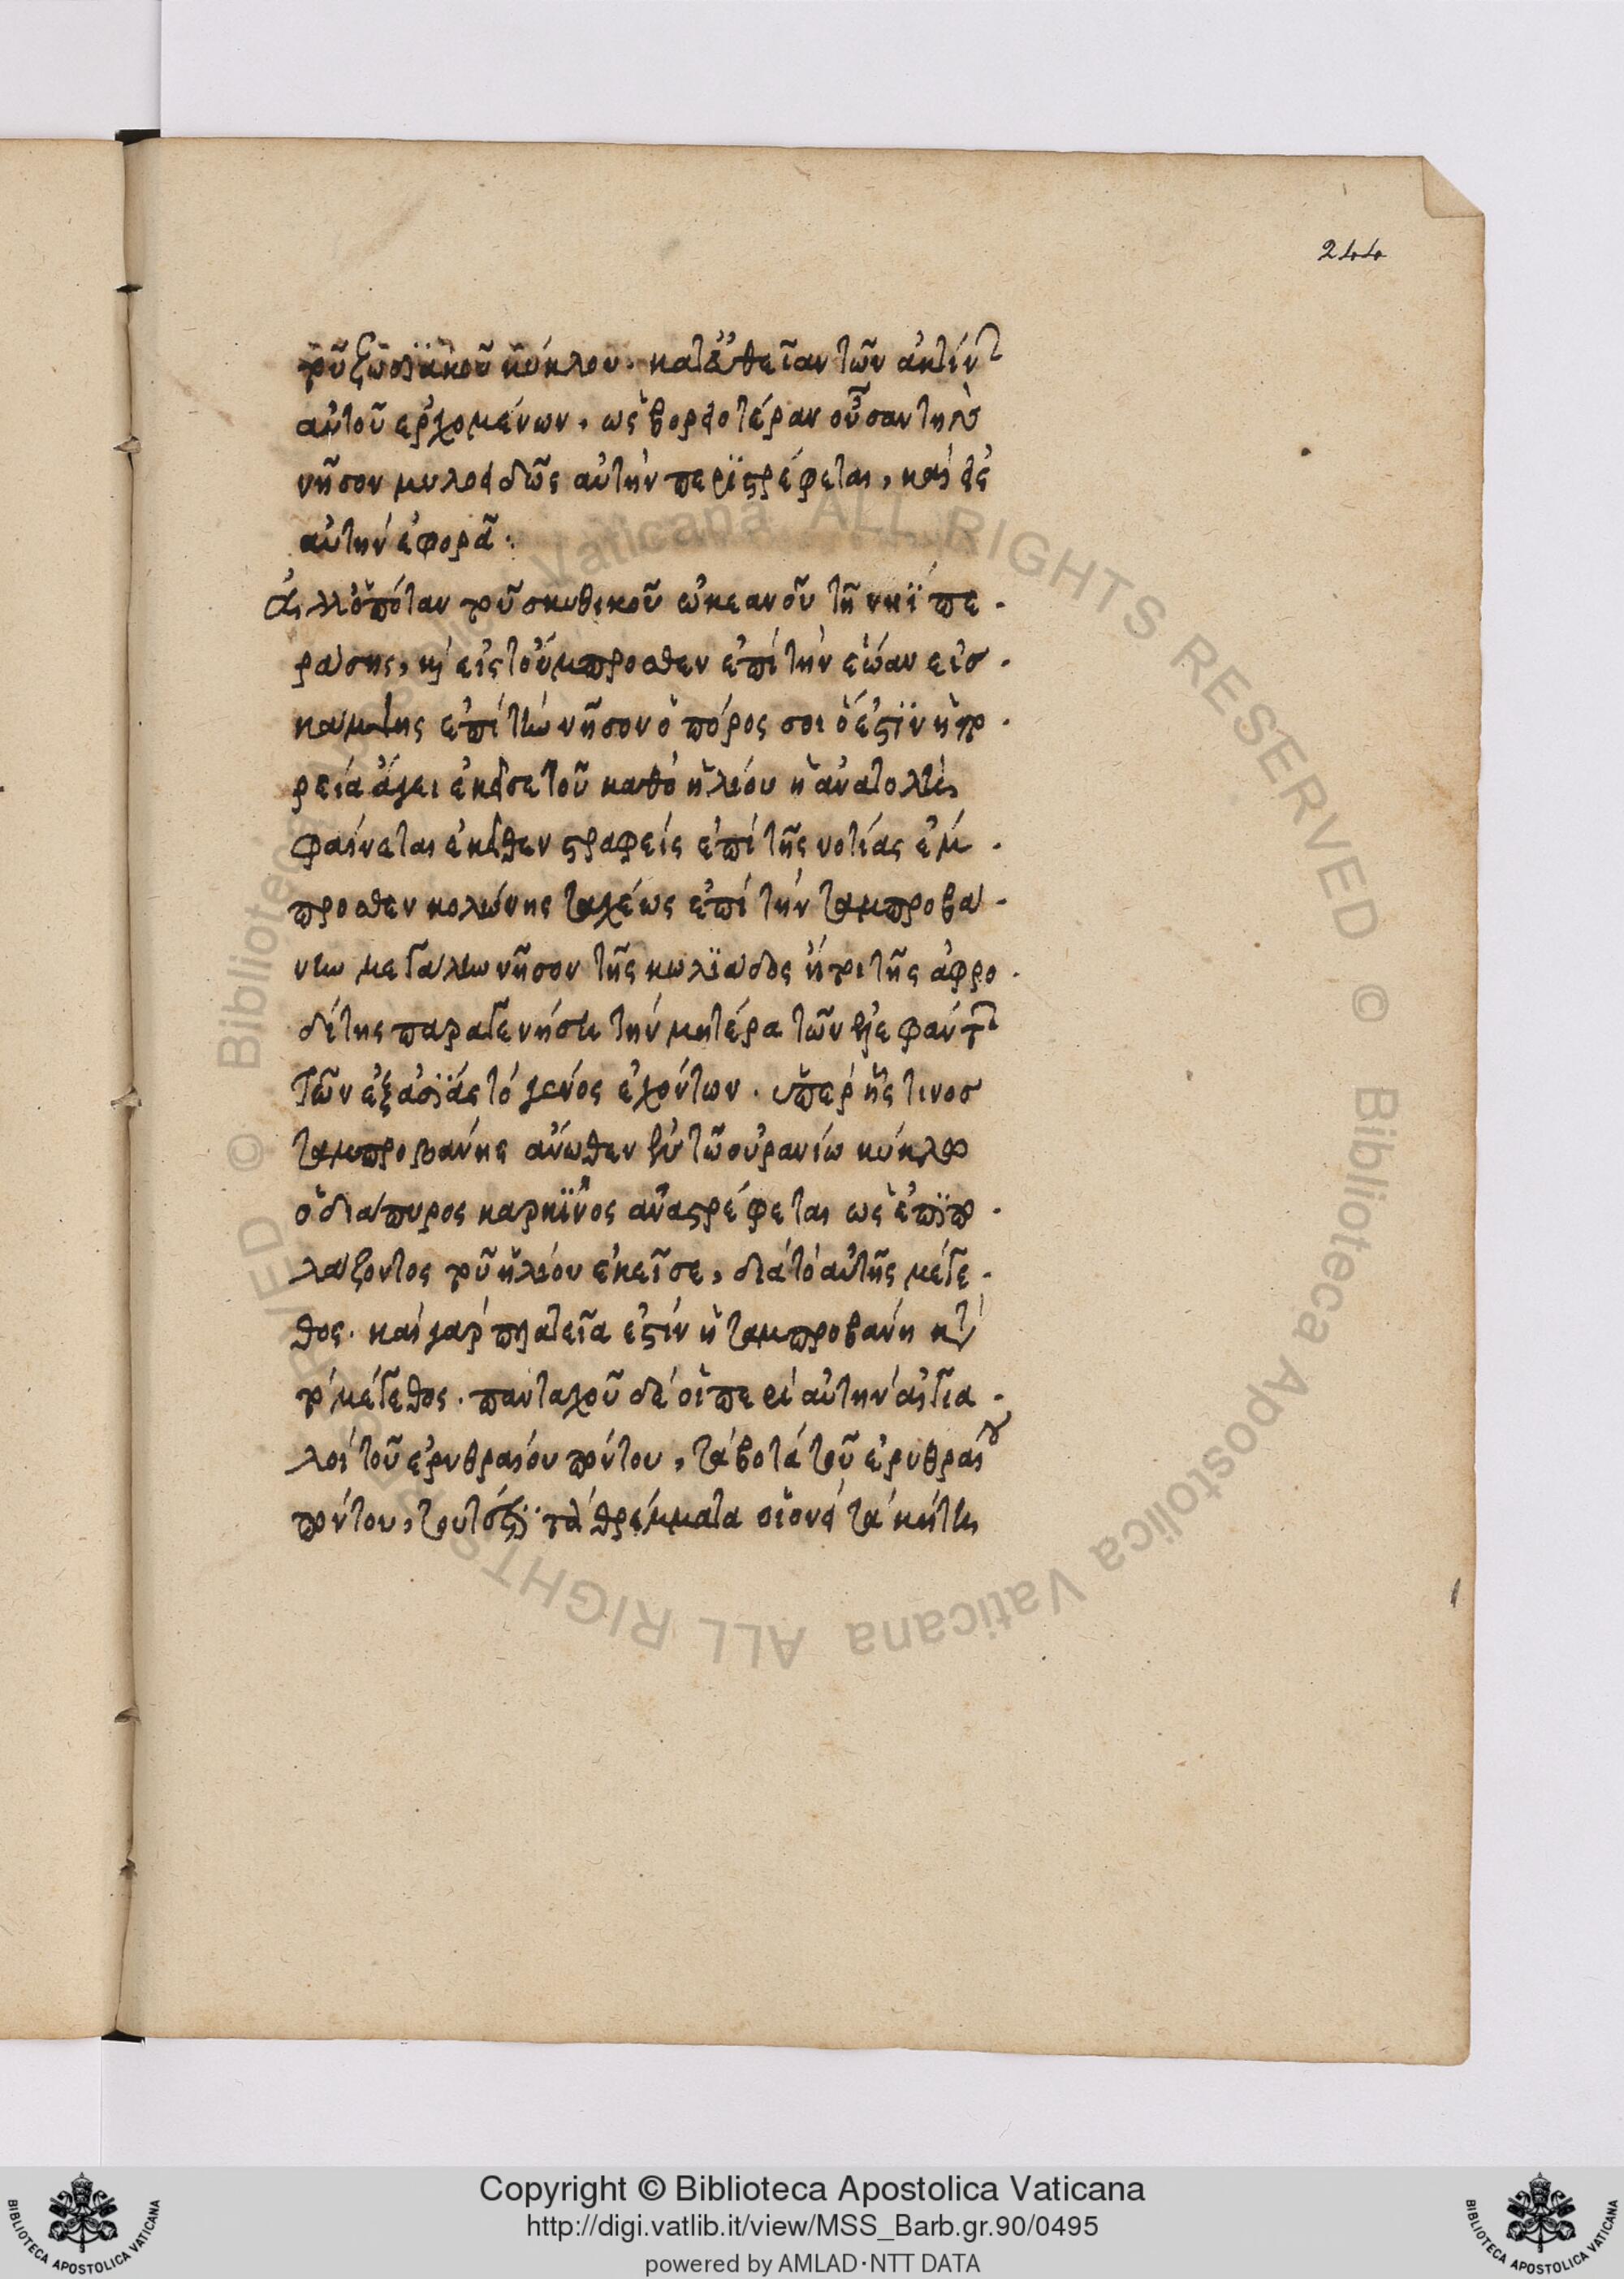 244
τοῦ ζωδϊακοῦ κύκλου. κατ' εὐθεῖαν τῶν ἀκτίνων
αὐτοῦ ἐρχομένων, ὡς βορειοτέραν οὖσαν τὴν
νῆσον μυλοειδῶς αὐτὴν περϊστρέφεται, καὶ εἰς
αὐτὴν ἐφορᾶ.
ἀλλ' ὁπόταν τοῦ σκυθικοῦ ὠκεανοῦ τῇ νηῒ πε.
ράσης, κ εἰς τοὔμπροσθεν ἐπὶ τὴν ἑώαν εἰσ.
κάμψης ἐπὶ τὴν νῆσον ὁ πόρος σοι ὅ ἐστϊν ἡ πο.
ρεία ἄγει ἐκεῖσε τοῦ καθ' ὃ ἡλίου ἡ ἀνατολὴ
φαίνεται ἐκεῖθεν στραφεὶς ἐπὶ τῆς νοτίας ἐμ.
προσθεν κολώνης ταχέως ἐπὶ τὴν ταμπροβά.
νην μεγάλην νῆσον τῆς κωλϊάδος ἤτοι τῆς ἀφρο.
δίτης παραγενήση τὴν μητέρα τῶν ἐλεφάντων
τῶν ἐξ ἀσϊάς τὸ γένος ἐχόντων. ὑπὲρ ἧς τινοσ
ταμπροβάνης ἄνωθεν ἐν τῶ οὐρανίω κύκλω
ὁ διάπυρος καρκῖνος ἀναστρέφεται ὡς ἐπϊπ.
λάζοντος τοῦ ἡλίου ἐκεῖσε, διὰ τὸ αὐτῆς μέγε.
θος. καὶ γὰρ πλατεῖα ἐστὶν ἡ ταμπροβάνη κατὰ
τὸ μέγεθος. πανταχοῦ δὲ οἱ περὶ αὐτὴν αἰγια.
λοὶ τοῦ ἐρυθραίου πόντου, τὰ βοτὰ τοῦ ἐρυθραίου
πόντου, τουτέστϊ τὰ θρέμματα οἷον τὰ κήτη
Copyright © Biblioteca Apostolica Vaticana
http://digi.vatlib.it/view/MSS_Barb.gr.90/0495
powered by AMLAD·NTT DATA
BIBLIOTECA APOSTOLICA VATICANA
BIBLIOTECA APOSTOLICA VATICANA
© Biblioteca Apostolica Vaticana ALL RIGHTS RESERVED © Biblioteca Apostolica Vaticana ALL RIGHTS RESERVED